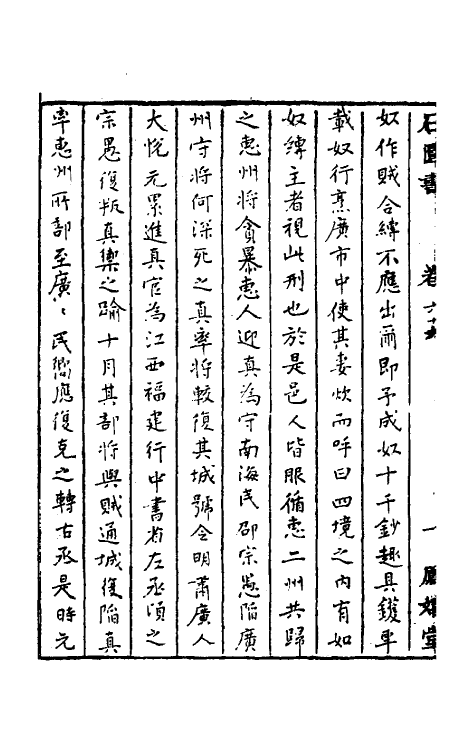 石匱書 卷六十五 一 鳳嬉堂
奴作賊合縛不應出爾即予成奴十千鈔趣具鑊車
載奴行烹廣市中使其妻炊而呼曰四境之內有如
奴縛主者視此刑也於是邑人皆服循惠二州共歸
之惠州將貪暴惠人迎真為守南海民邵宗愚陷廣
州守將何深死之真率將較復其城號令明肅廣人
大悅元累進真官為江西福建行中書省左丞頃之
宗愚復叛真禦之踰十月其部將與賊通城復陷真
率惠州所部至廣〻民嚮應復克之轉右丞是時元